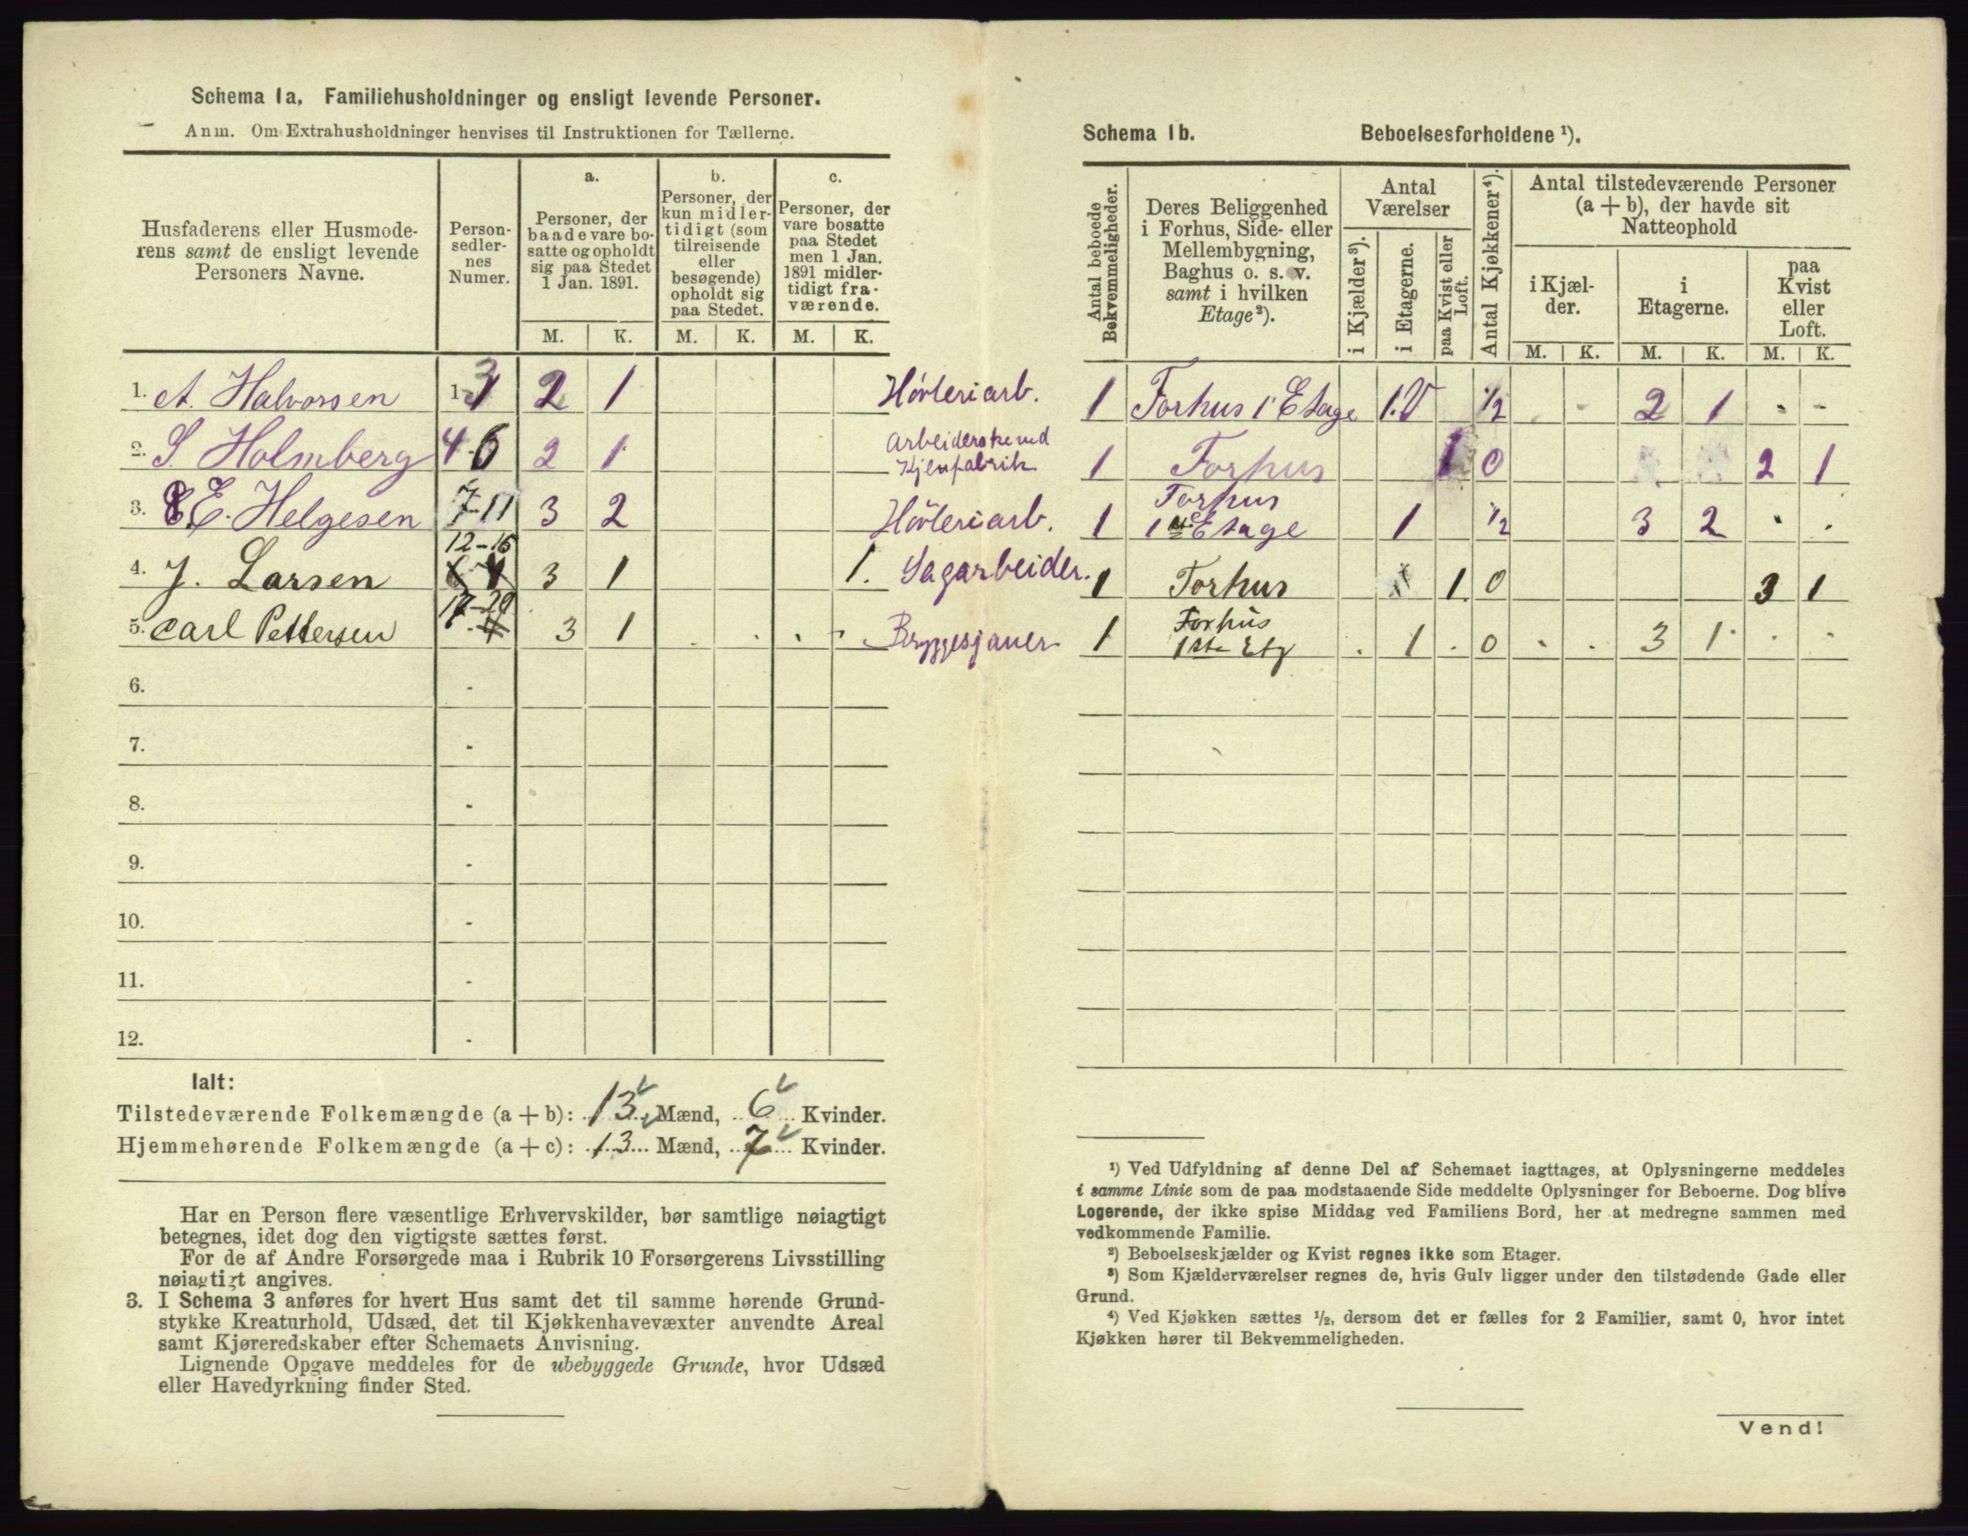 Schema 1a. Familiehusholdninger og ensligt levende Personer.
Anm. Om Extrahusholdninger henvises til Instruktionen for Tællerne.
Husfaderens eller Husmode-
rens samt de ensligt levende
Personers Navne.
Person-
sedler-
nes
Numer.
a.
Personer, der
baade vare bo-
satte og opholdt
sig paa Stedet
1 Jan. 1891.
b.
Personer, der
kun midler-
tidigt (som
tilreisende
eller
besøgende)
opholdt sig
paa Stedet.
c.
Personer, der
vare bosatte
paa Stedet
men 1 Jan.
1891 midler-
tidigt fra-
værende.
M. K. M. K. M. K.
1. A. Halvorsen 1-3 2 1 Høvleriarb.
2. S. Holmberg 4-6 2 1 Arbeiderske ved
3. E. Helgesen 7-11 3 2 Høvleriarb.
4. J. Larsen 12-16 3 1 1. Sagarbeider.
5. Carl Pettersen 17-20 3 1 Bryggesjauer
6. -
7. -
8. -
9. -
10. -
11. -
12. -
Ialt:
Tilstedeværende Folkemængde (a + b): 13 Mænd, 6 Kvinder.
Hjemmehørende Folkemængde (a + c): 13 Mænd, 7 Kvinder.
Har en Person flere væsentlige Erhvervskilder, bør samtlige nøiagtigt
betegnes, idet dog den vigtigste sættes først.
For de af Andre Forsørgede maa i Rubrik 10 Forsørgerens Livsstilling
nøiagtigt angives.
3. I Schema 3 anføres for hvert Hus samt det til samme hørende Grund-
stykke Kreaturhold, Udsæd, det til Kjøkkenhavevæxter anvendte Areal
samt Kjøreredskaber efter Schemaets Anvisning.
Lignende Opgave meddeles for de ubebyggede Grunde, hvor Udsæd
eller Havedyrkning finder Sted.
Schema 1b. Beboelsesforholdene ¹).
Antal beboede
Bekvemmeligheder.
Deres Beliggenhed
i Forhus, Side- eller
Mellembygning,
Baghus o. s. v.
samt i hvilken
Etage²).
Antal
Værelser
i Kjælder³).
i Etagerne.
paa Kvist eller
Loft.
Antal Kjøkkener⁴).
Antal tilstedeværende Personer
(a + b), der havde sit
Natteophold
i Kjæl-
der.
i
Etagerne.
paa
Kvist
eller
Loft.
M. K. M. K. M. K.
1 Forhus 1 Etage 1. 1/2 - 2 1 - -
1 Forhus 1 0 2 1
1 Forhus
1ste Etage 1 1/2 3 2 . .
1 Forhus 1. 0 3 1
1 Forhus
1ste Etg . 1 . 0 . . 3 1 . .
¹) Ved Udfyldning af denne Del af Schemaet iagttages, at Oplysningerne meddeles
i samme Linie som de paa modstaaende Side meddelte Oplysninger for Beboerne. Dog blive
Logerende, der ikke spise Middag ved Familiens Bord, her at medregne sammen med
vedkommende Familie.
²) Beboelseskjælder og Kvist regnes ikke som Etager.
³) Som Kjælderværelser regnes de, hvis Gulv ligger under den tilstødende Gade eller
Grund.
⁴) Ved Kjøkken sættes ½, dersom det er fælles for 2 Familier, samt 0, hvor intet
Kjøkken hører til Bekvemmeligheden.
Vend!